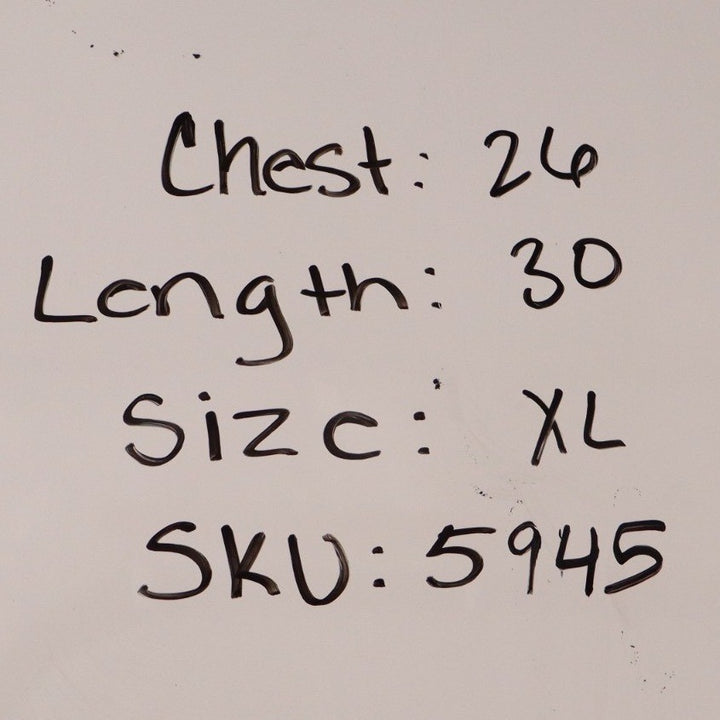 Chest: 26
Length: 30
Size: XL
SKU: 5945